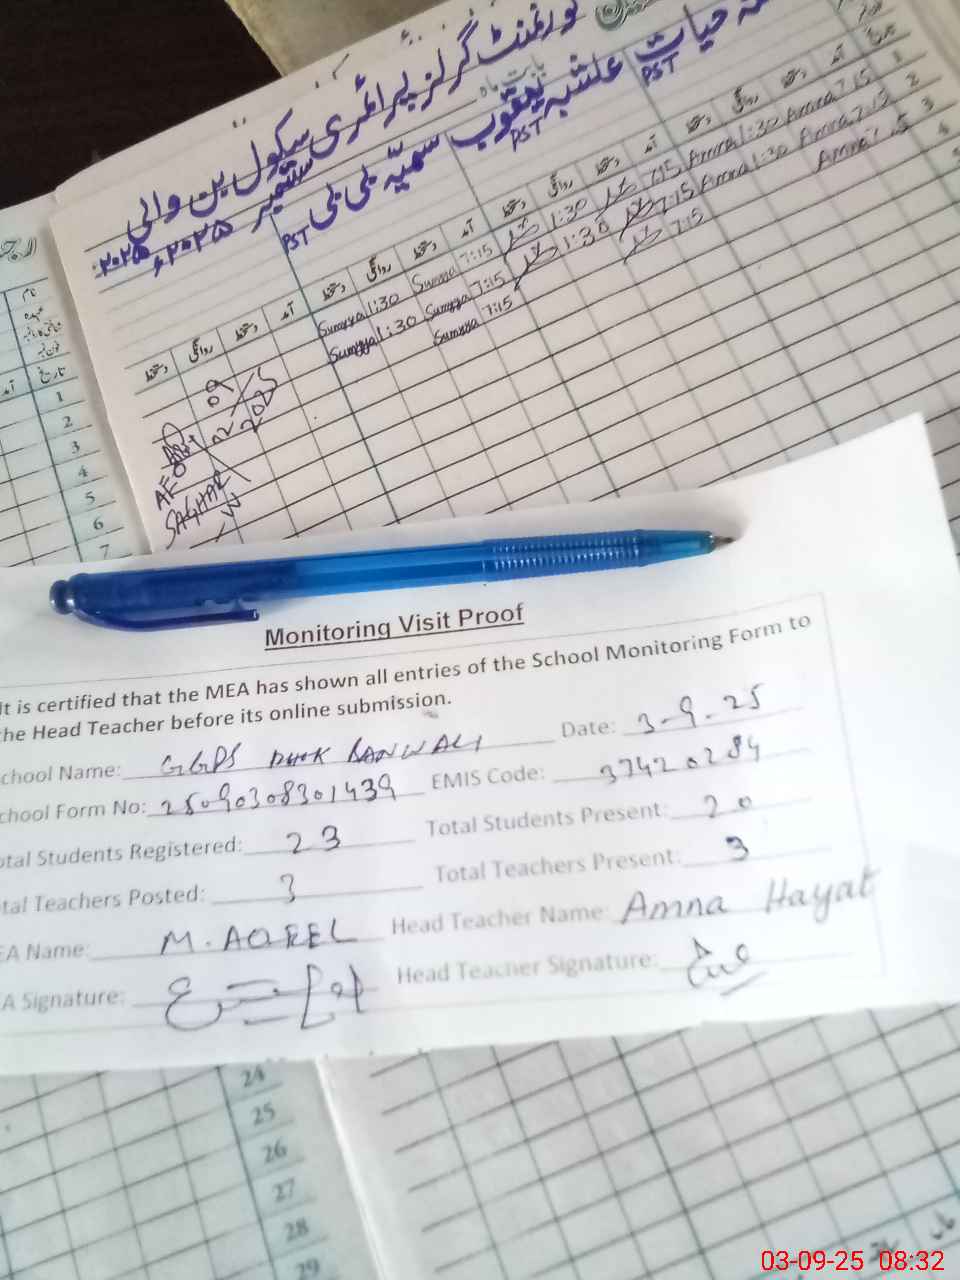 گورنمنٹ گرلز پرائمری سکول بن والی
بابت ماہ
ستمبر ۲۰۲۵ء ۲۰۲۵
حیات PST علشبہ یعقوب PST سمیّہ بی بی PST
آمد دستخط روانگی دستخط آمد دستخط روانگی دستخط آمد دستخط روانگی دستخط
1 7:15 Amna 1:30 Amna 7:15 1:30 Sumyya 7:15 Sumyya 1:30 Sumyya
2 7:15 Amna 1:30 Amna 7:15 1:30 Sumyya 7:15 Sumyya 1:30 Sumyya
3 7:15 Amna 7:15 7:15 Sumyya
4
09
02 2025
AEO
SAGHAR
نام
عہدہ
تاریخ آمد
1
2
3
4
5
6
7
Monitoring Visit Proof
It is certified that the MEA has shown all entries of the School Monitoring Form to
the Head Teacher before its online submission.
chool Name: GGPS DHOK BANWALI Date: 3-9-25
chool Form No: 25090308301439 EMIS Code: 37420284
otal Students Registered: 23 Total Students Present: 20
tal Teachers Posted: 3 Total Teachers Present: 3
EA Name: M. AQEEL Head Teacher Name: Amna Hayat
A Signature: Head Teacher Signature:
24
25
26
27
28
29
03-09-25 08:32